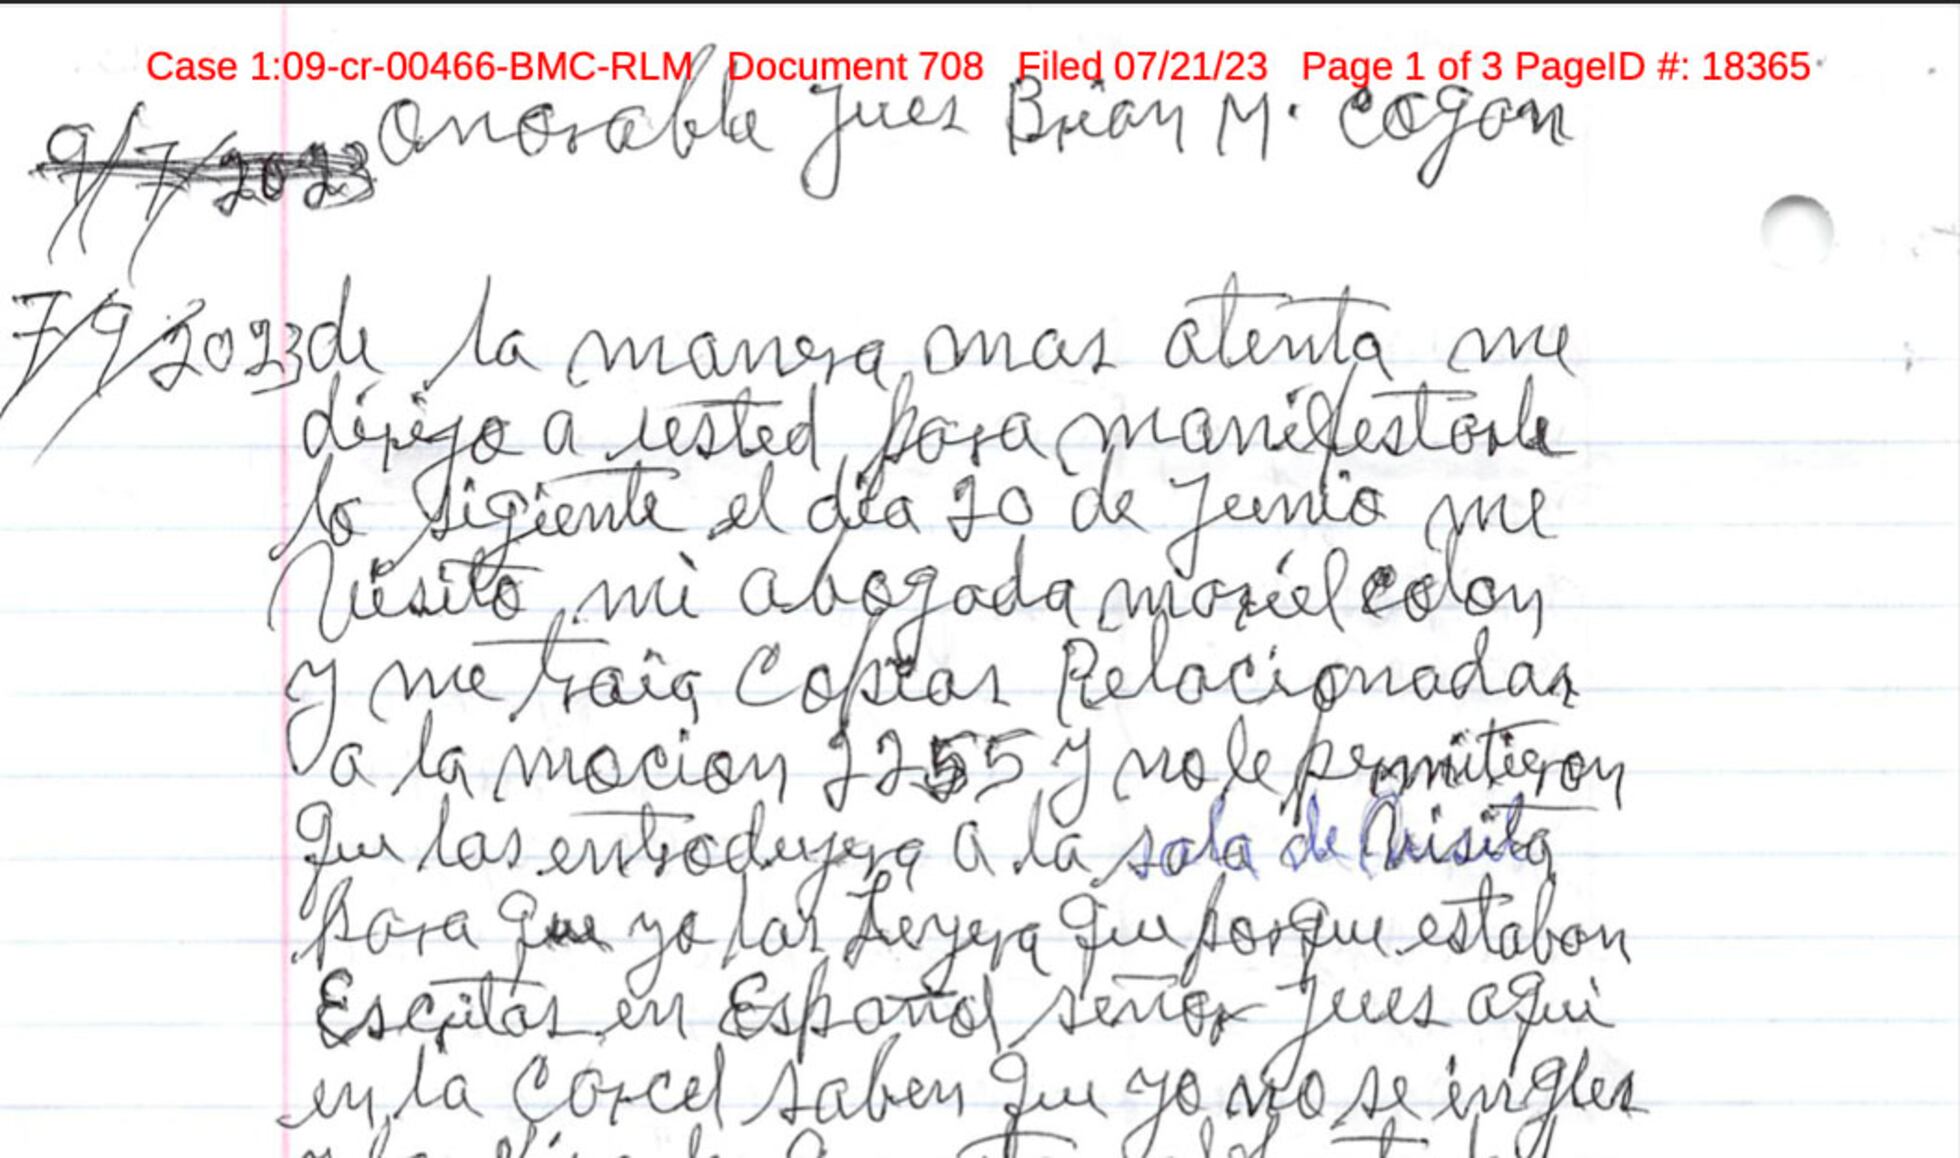 Case 1:09-cr-00466-BMC-RLM Document 708 Filed 07/21/23 Page 1 of 3 PageID #: 18365
9/7/2023 Onorable Jues Brian M. Cogan
7/9/2023 de la manera mas atenta me
dirijo a usted para manifestarle
lo sigiente el dia 20 de Junio me
Visito mi abogada mariel colon
y me traia Copias Relacionadas
a la mocion 2255 y no le permitieron
que las entrodujera a la sala de Visita
para que yo las Leyera que porque estaban
Escritas en Español señor Jues aqui
en la Carcel saben que yo no se ingles